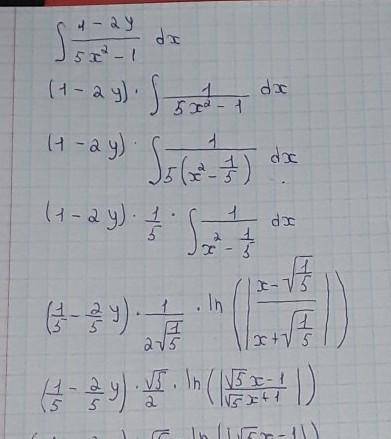 ∫ (1-2y)/(5x²-1) dx
(1-2y) · ∫ 1/(5x²-1) dx
(1-2y) · ∫ 1/(5(x²-1/5)) dx
(1-2y) · 1/5 · ∫ 1/(x²-1/5) dx
(1/5 - 2/5 y) · 1/(2√(1/5)) · ln(|(x-√(1/5))/(x+√(1/5))|)
(1/5 - 2/5 y) · √5/2 · ln(|(√5x-1)/(√5x+1)|)